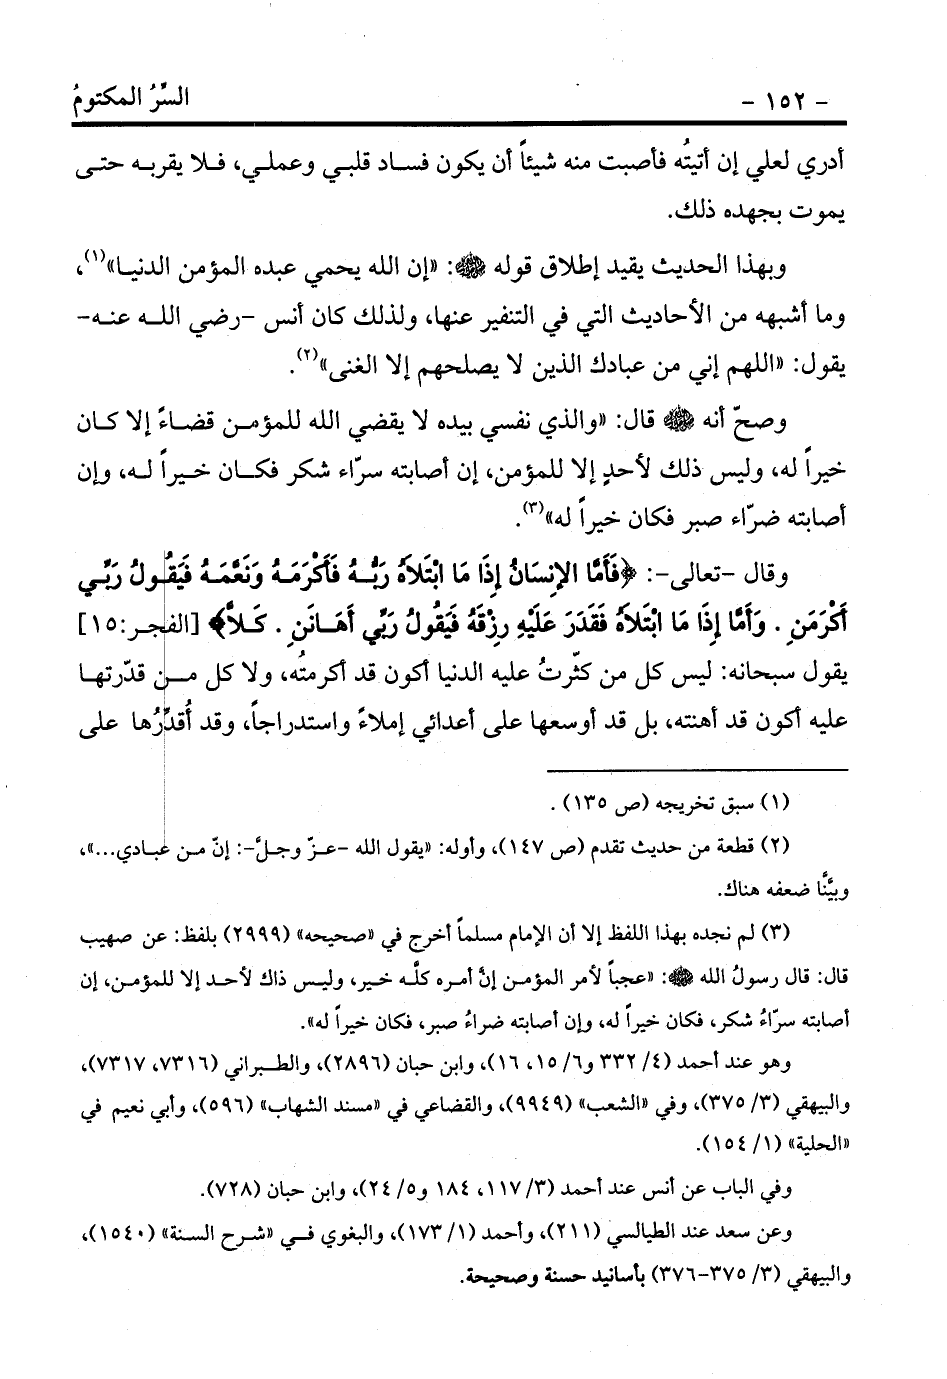 - ١٥٢ - السِّرُ المكتومُ
أدري لعلي إن أتيتُه فأصبت منه شيئاً أن يكون فساد قلبي وعملي، فلا يقربه حتى
يموت بجهده ذلك.
وبهذا الحديث يقيد إطلاق قوله ﷺ: «إن الله يحمي عبده المؤمن الدنيا»(١)،
وما أشبهه من الأحاديث التي في التنفير عنها، ولذلك كان أنس -رضي الله عنه-
يقول: «اللهم إني من عبادك الذين لا يصلحهم إلا الغنى»(٢).
وصحّ أنه ﷺ قال: «والذي نفسي بيده لا يقضي الله للمؤمن قضاءً إلا كان
خيراً له، وليس ذلك لأحدٍ إلا للمؤمن، إن أصابته سرّاء شكر فكان خيراً له، وإن
أصابته ضرّاء صبر فكان خيراً له»(٣).
وقال -تعالى-: ﴿فَأَمَّا الإِنسَانُ إِذَا مَا ابْتَلاَهُ رَبُّهُ فَأَكْرَمَهُ وَنَعَّمَهُ فَيَقُولُ رَبِّي
أَكْرَمَنِ . وَأَمَّا إِذَا مَا ابْتَلاَهُ فَقَدَرَ عَلَيْهِ رِزْقَهُ فَيَقُولُ رَبِّي أَهَانَنِ . كَلاَّ﴾ [الفجر:١٥]
يقول سبحانه: ليس كل من كثّرتُ عليه الدنيا أكون قد أكرمتُه، ولا كل من قدّرتها
عليه أكون قد أهنته، بل قد أوسعها على أعدائي إملاءً واستدراجاً، وقد أُقدِّرُها على
(١) سبق تخريجه (ص ١٣٥) .
(٢) قطعة من حديث تقدم (ص ١٤٧)، وأوله: «يقول الله -عزّ وجلَّ-: إنّ من عبادي...»،
وبيَّنَّا ضعفه هناك.
(٣) لم نجده بهذا اللفظ إلا أن الإمام مسلماً أخرج في «صحيحه» (٢٩٩٩) بلفظ: عن صهيب
قال: قال رسولُ الله ﷺ: «عجباً لأمر المؤمن إنَّ أمره كلَّه خير، وليس ذاك لأحد إلا للمؤمن، إن
أصابته سرّاءُ شكر، فكان خيراً له، وإن أصابته ضراءُ صبر، فكان خيراً له».
وهو عند أحمد (٤/ ٣٣٢ و٦/ ١٥، ١٦)، وابن حبان (٢٨٩٦)، والطبراني (٧٣١٦، ٧٣١٧)،
والبيهقي (٣/ ٣٧٥)، وفي «الشعب» (٩٩٤٩)، والقضاعي في «مسند الشهاب» (٥٩٦)، وأبي نعيم في
«الحلية» (١/ ١٥٤).
وفي الباب عن أنس عند أحمد (٣/ ١١٧، ١٨٤ و٥/ ٢٤)، وابن حبان (٧٢٨).
وعن سعد عند الطيالسي (٢١١)، وأحمد (١/ ١٧٣)، والبغوي في «شرح السنة» (١٥٤٠)،
والبيهقي (٣/ ٣٧٥-٣٧٦) بأسانيد حسنة وصحيحة.